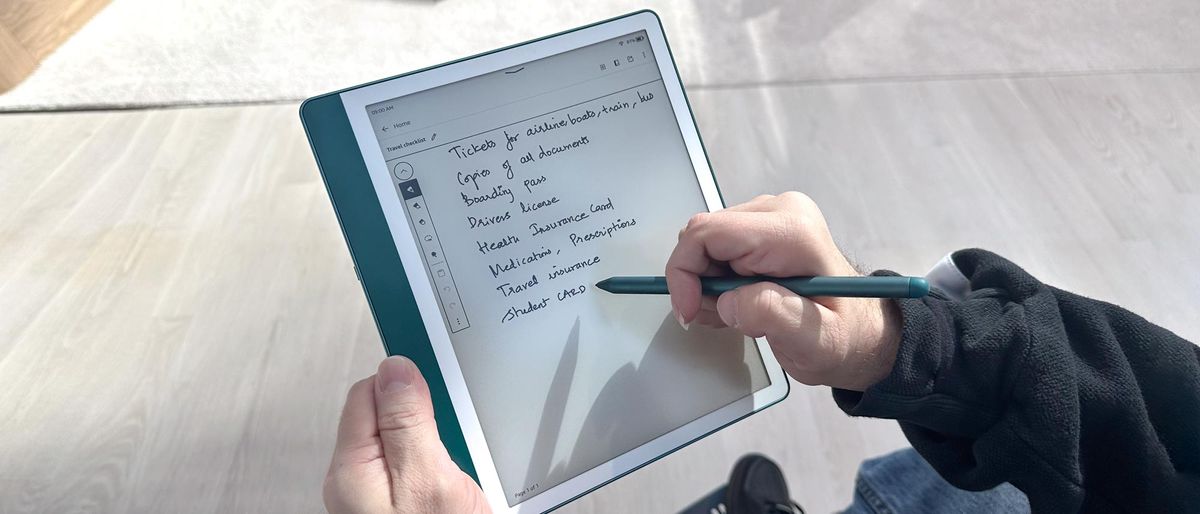 09:00 AM
87%
Home
Travel checklist
Tickets for airline, boats, train, bus
Copies of all documents
Boarding pass
Drivers license
Health Insurance Card
Medications, Prescriptions
Travel insurance
Student CARD
Page 1 of 1